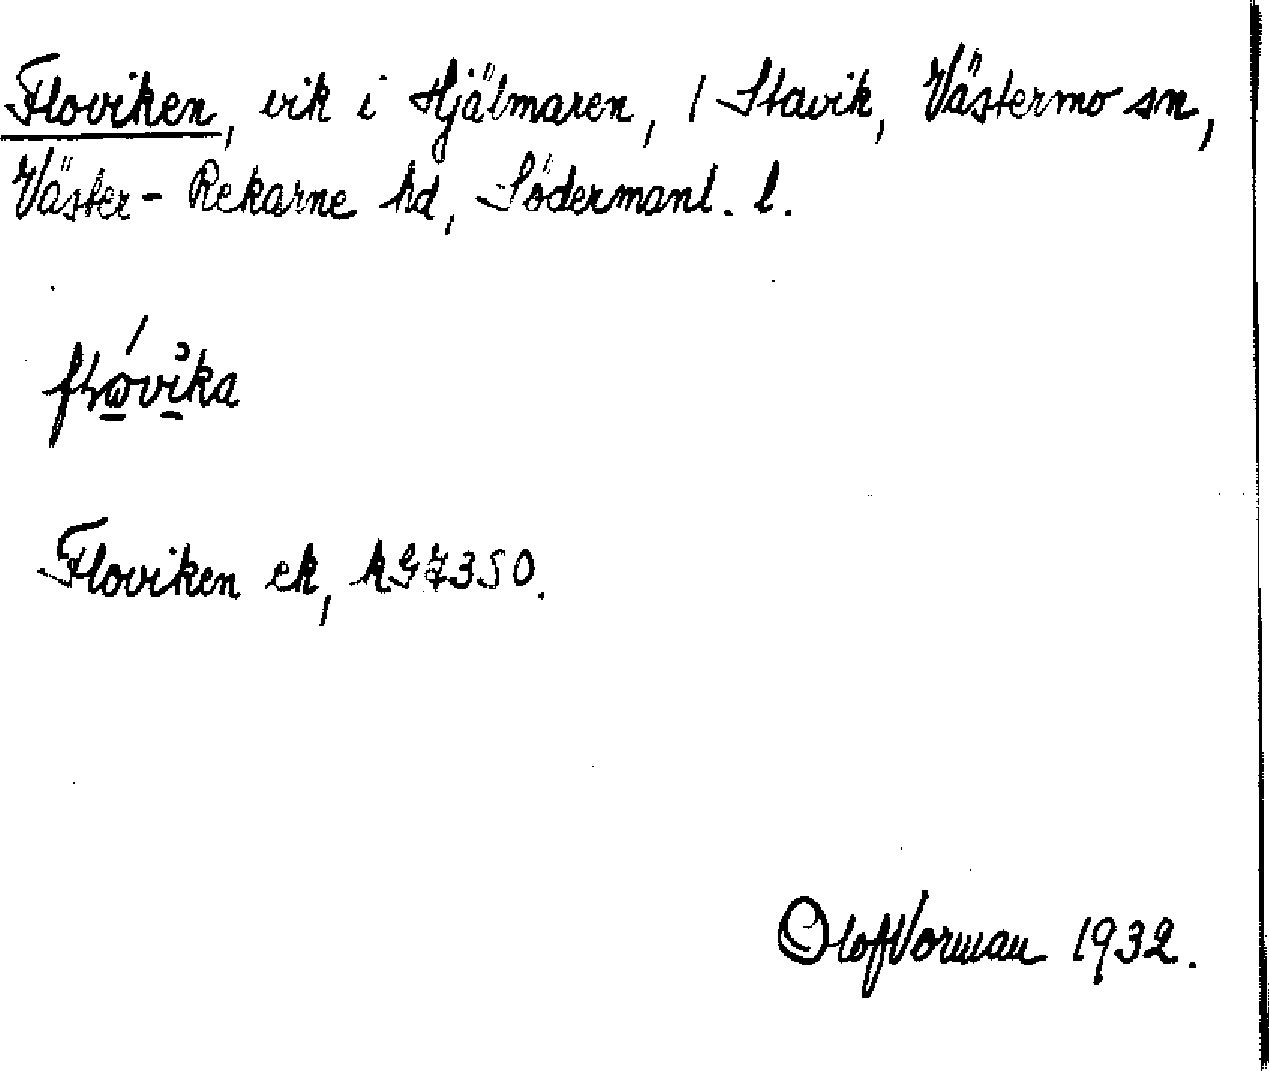 Floviken, vik i Hjälmaren, / Stavik, Västermo sn,
Väster-Rekarne hd, Södermanl. l.
Floviken ek,
Olof Vorman 1932.